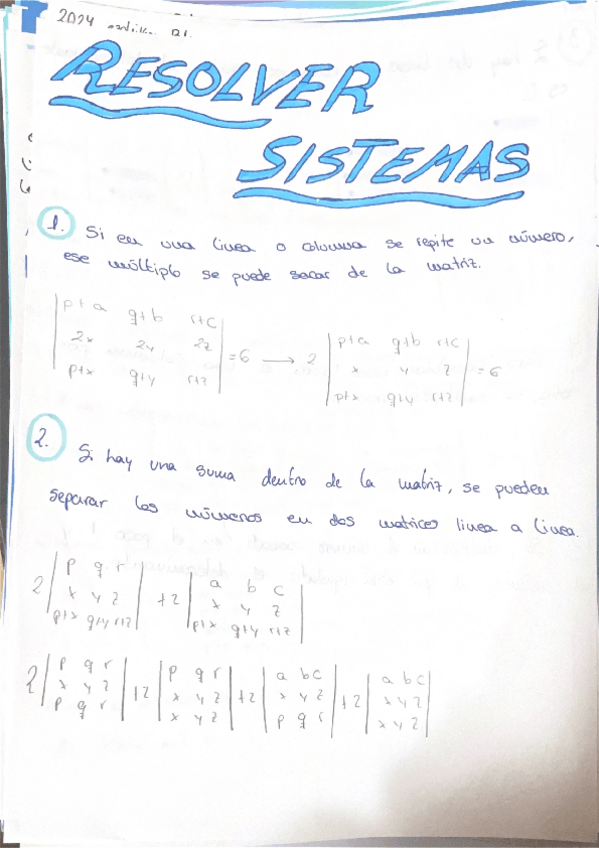 2024
RESOLVER
SISTEMAS
1. Si en una linea o columna se repite un número,
ese múltiplo se puede sacar de la matriz.
| p+a q+b r+c |
| 2x 2y 2z | = 6 → 2 | p+a q+b r+c |
| p+x q+y r+z | | x y z | = 6
| p+x q+y r+z |
2. Si hay una suma dentro de la matriz, se pueden
separar los números en dos matrices linea a linea.
2 | p q r | +2 | a b c |
| x y z | | x y z |
| p+x q+y r+z | | p+x q+y r+z |
2 | p q r | +2 | p q r | +2 | a b c | +2 | a b c |
| x y z | | x y z | | x y z | | x y z |
| p q r | | x y z | | p q r | | x y z |